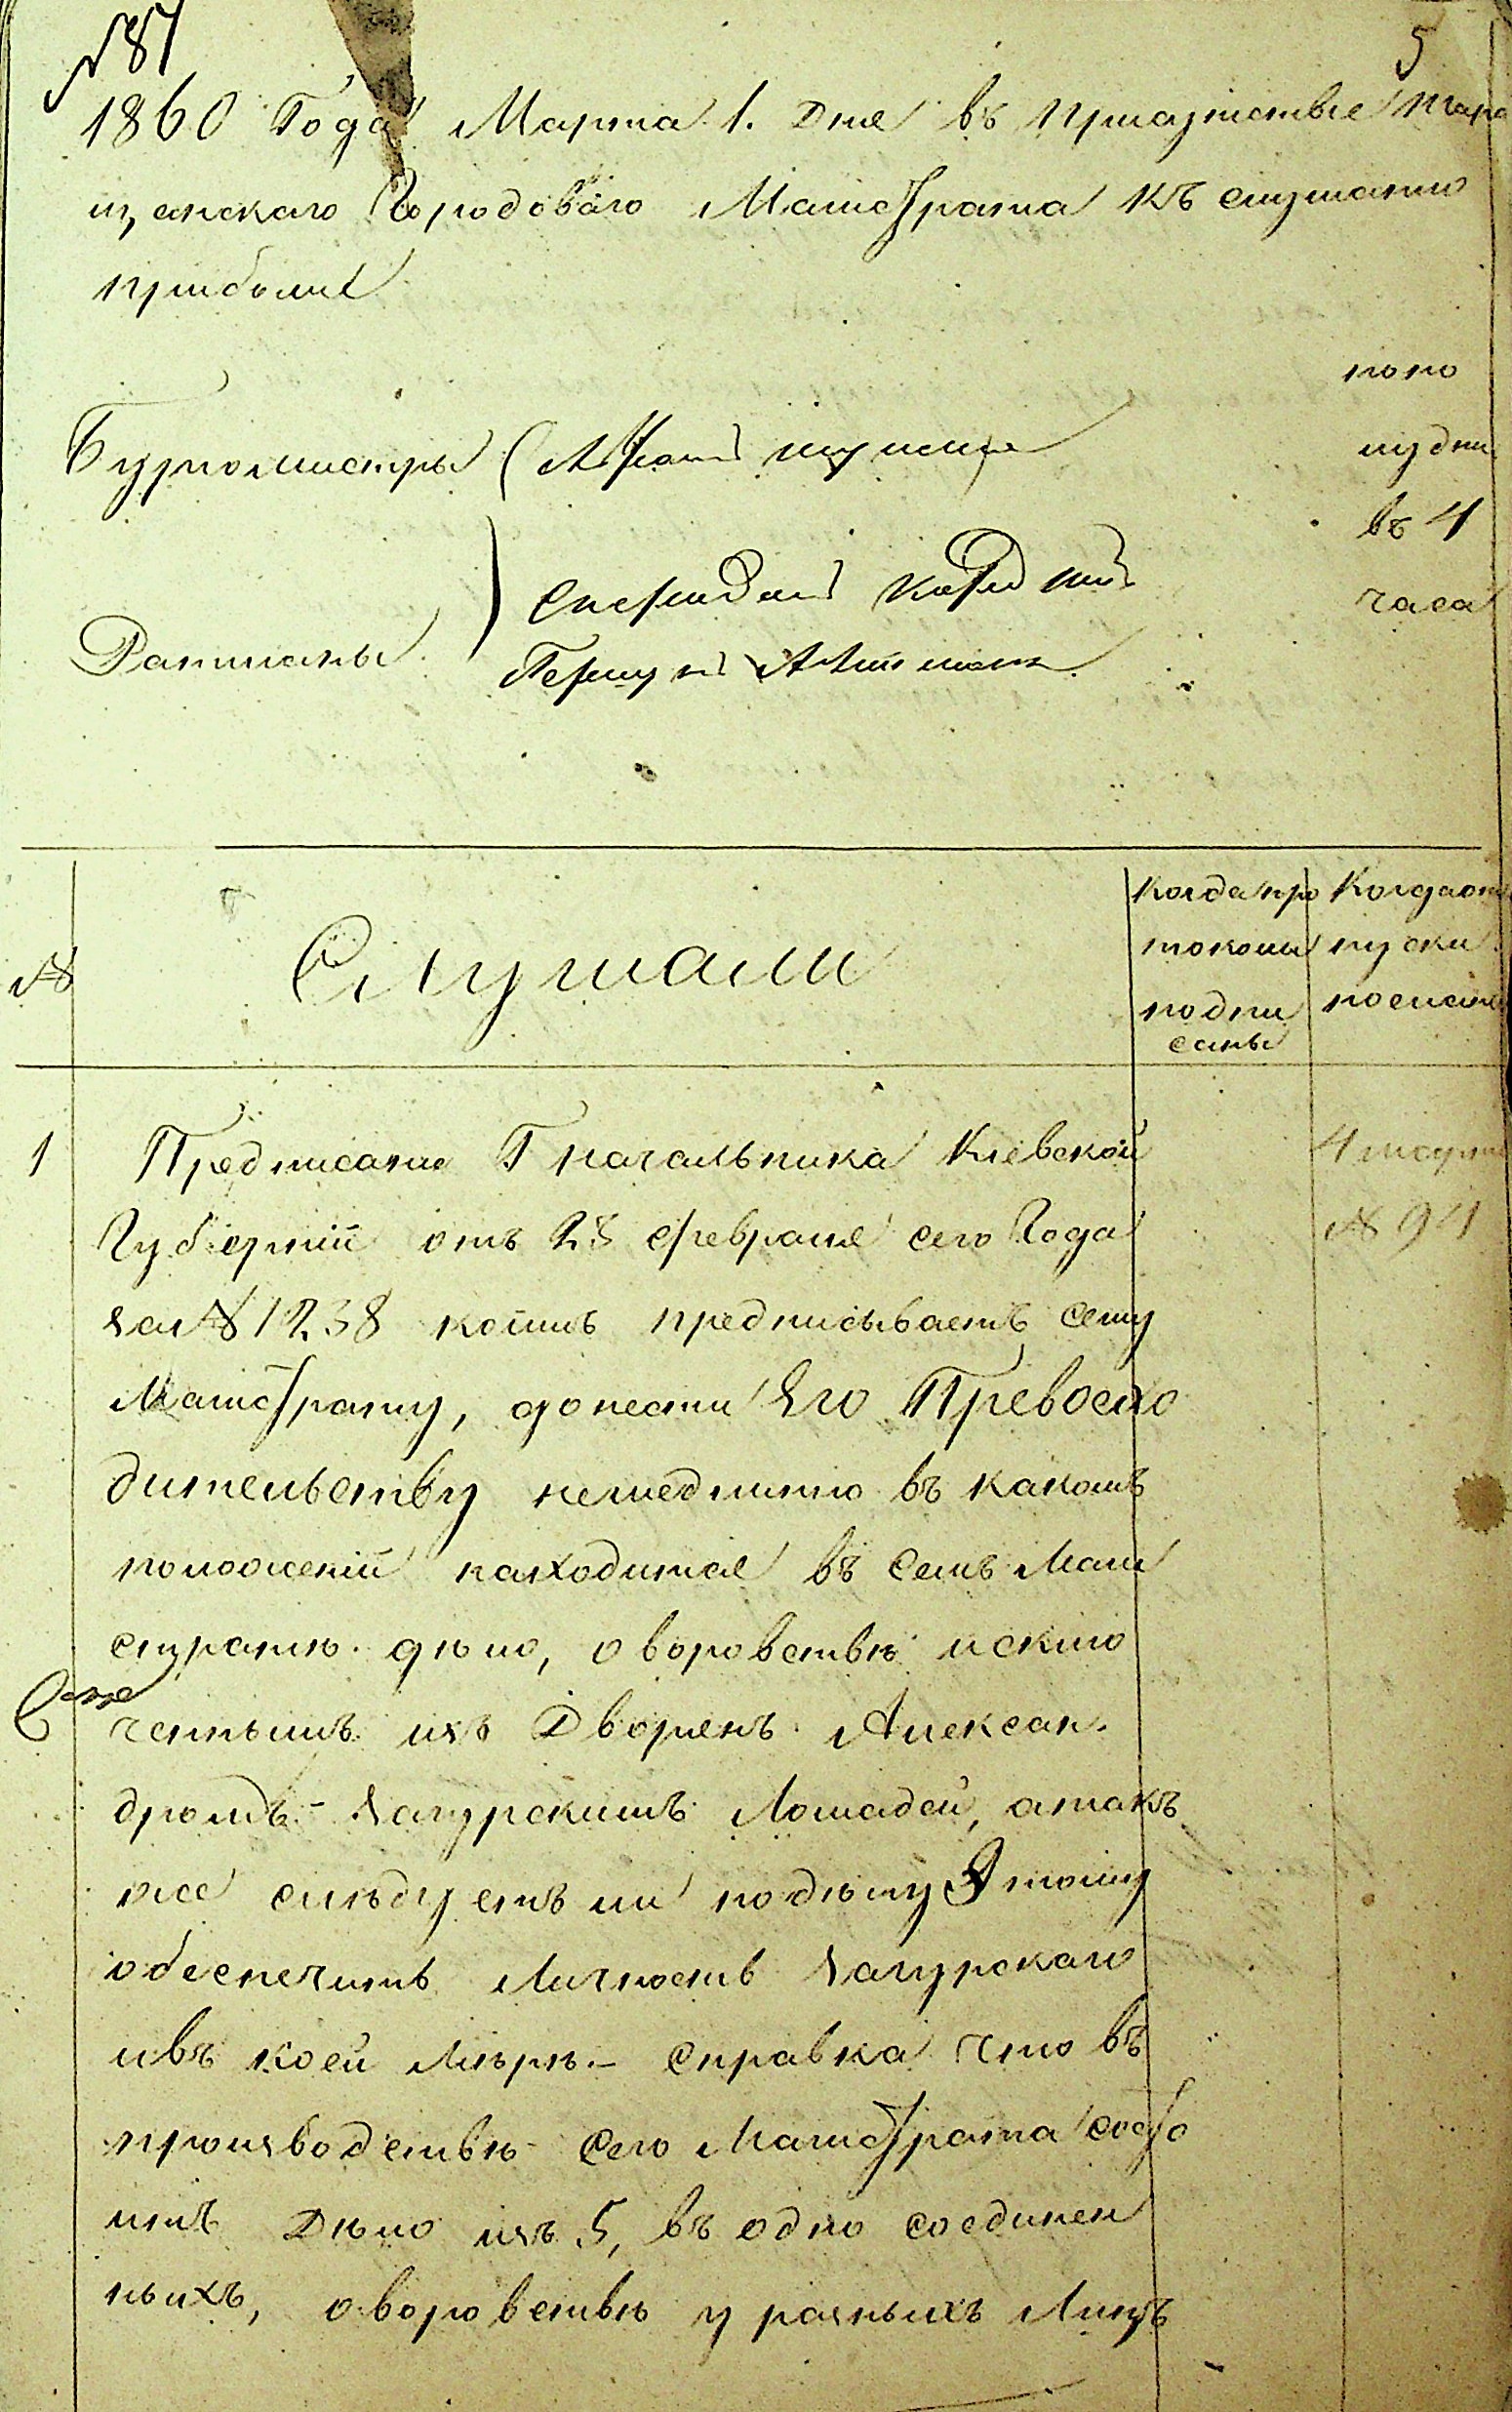 № 87
5
1860 Года Марта 1. Дня въ присутствіе Тара
щанскаго Городоваго Магистрата къ слушанію
прибыли
Бургомистры
Ратманы
попо
лудни
въ 4
часа
№
Слушали
Когда про
токолы
подпи
саны
Когда от
пуски
1
Предписаніе Г Начальника Кіевской
Губерніи отъ 23 февраля сего Года
за № 1238 коимъ предписываетъ сему
Магистрату, донести Его Превосхо
дительству немедленно въ какомъ
положеніи находится въ семъ Маги
стратѣ дѣло, о воровствѣ исклю
ченнымъ изъ Дворянъ Алексан
дромъ Загурскимъ Лошадей, атакъ
же слѣдуетъ ли подѣлу Этому
обеспечить Личность Загурскаго
ивъ коей Мѣрѣ. – Справка что въ
производствѣ сего Магистрата состо
итъ Дѣло изъ 5, въ одно соединен
ныхъ, о воровствѣ у разныхъ Лицъ
4 марта
№ 94